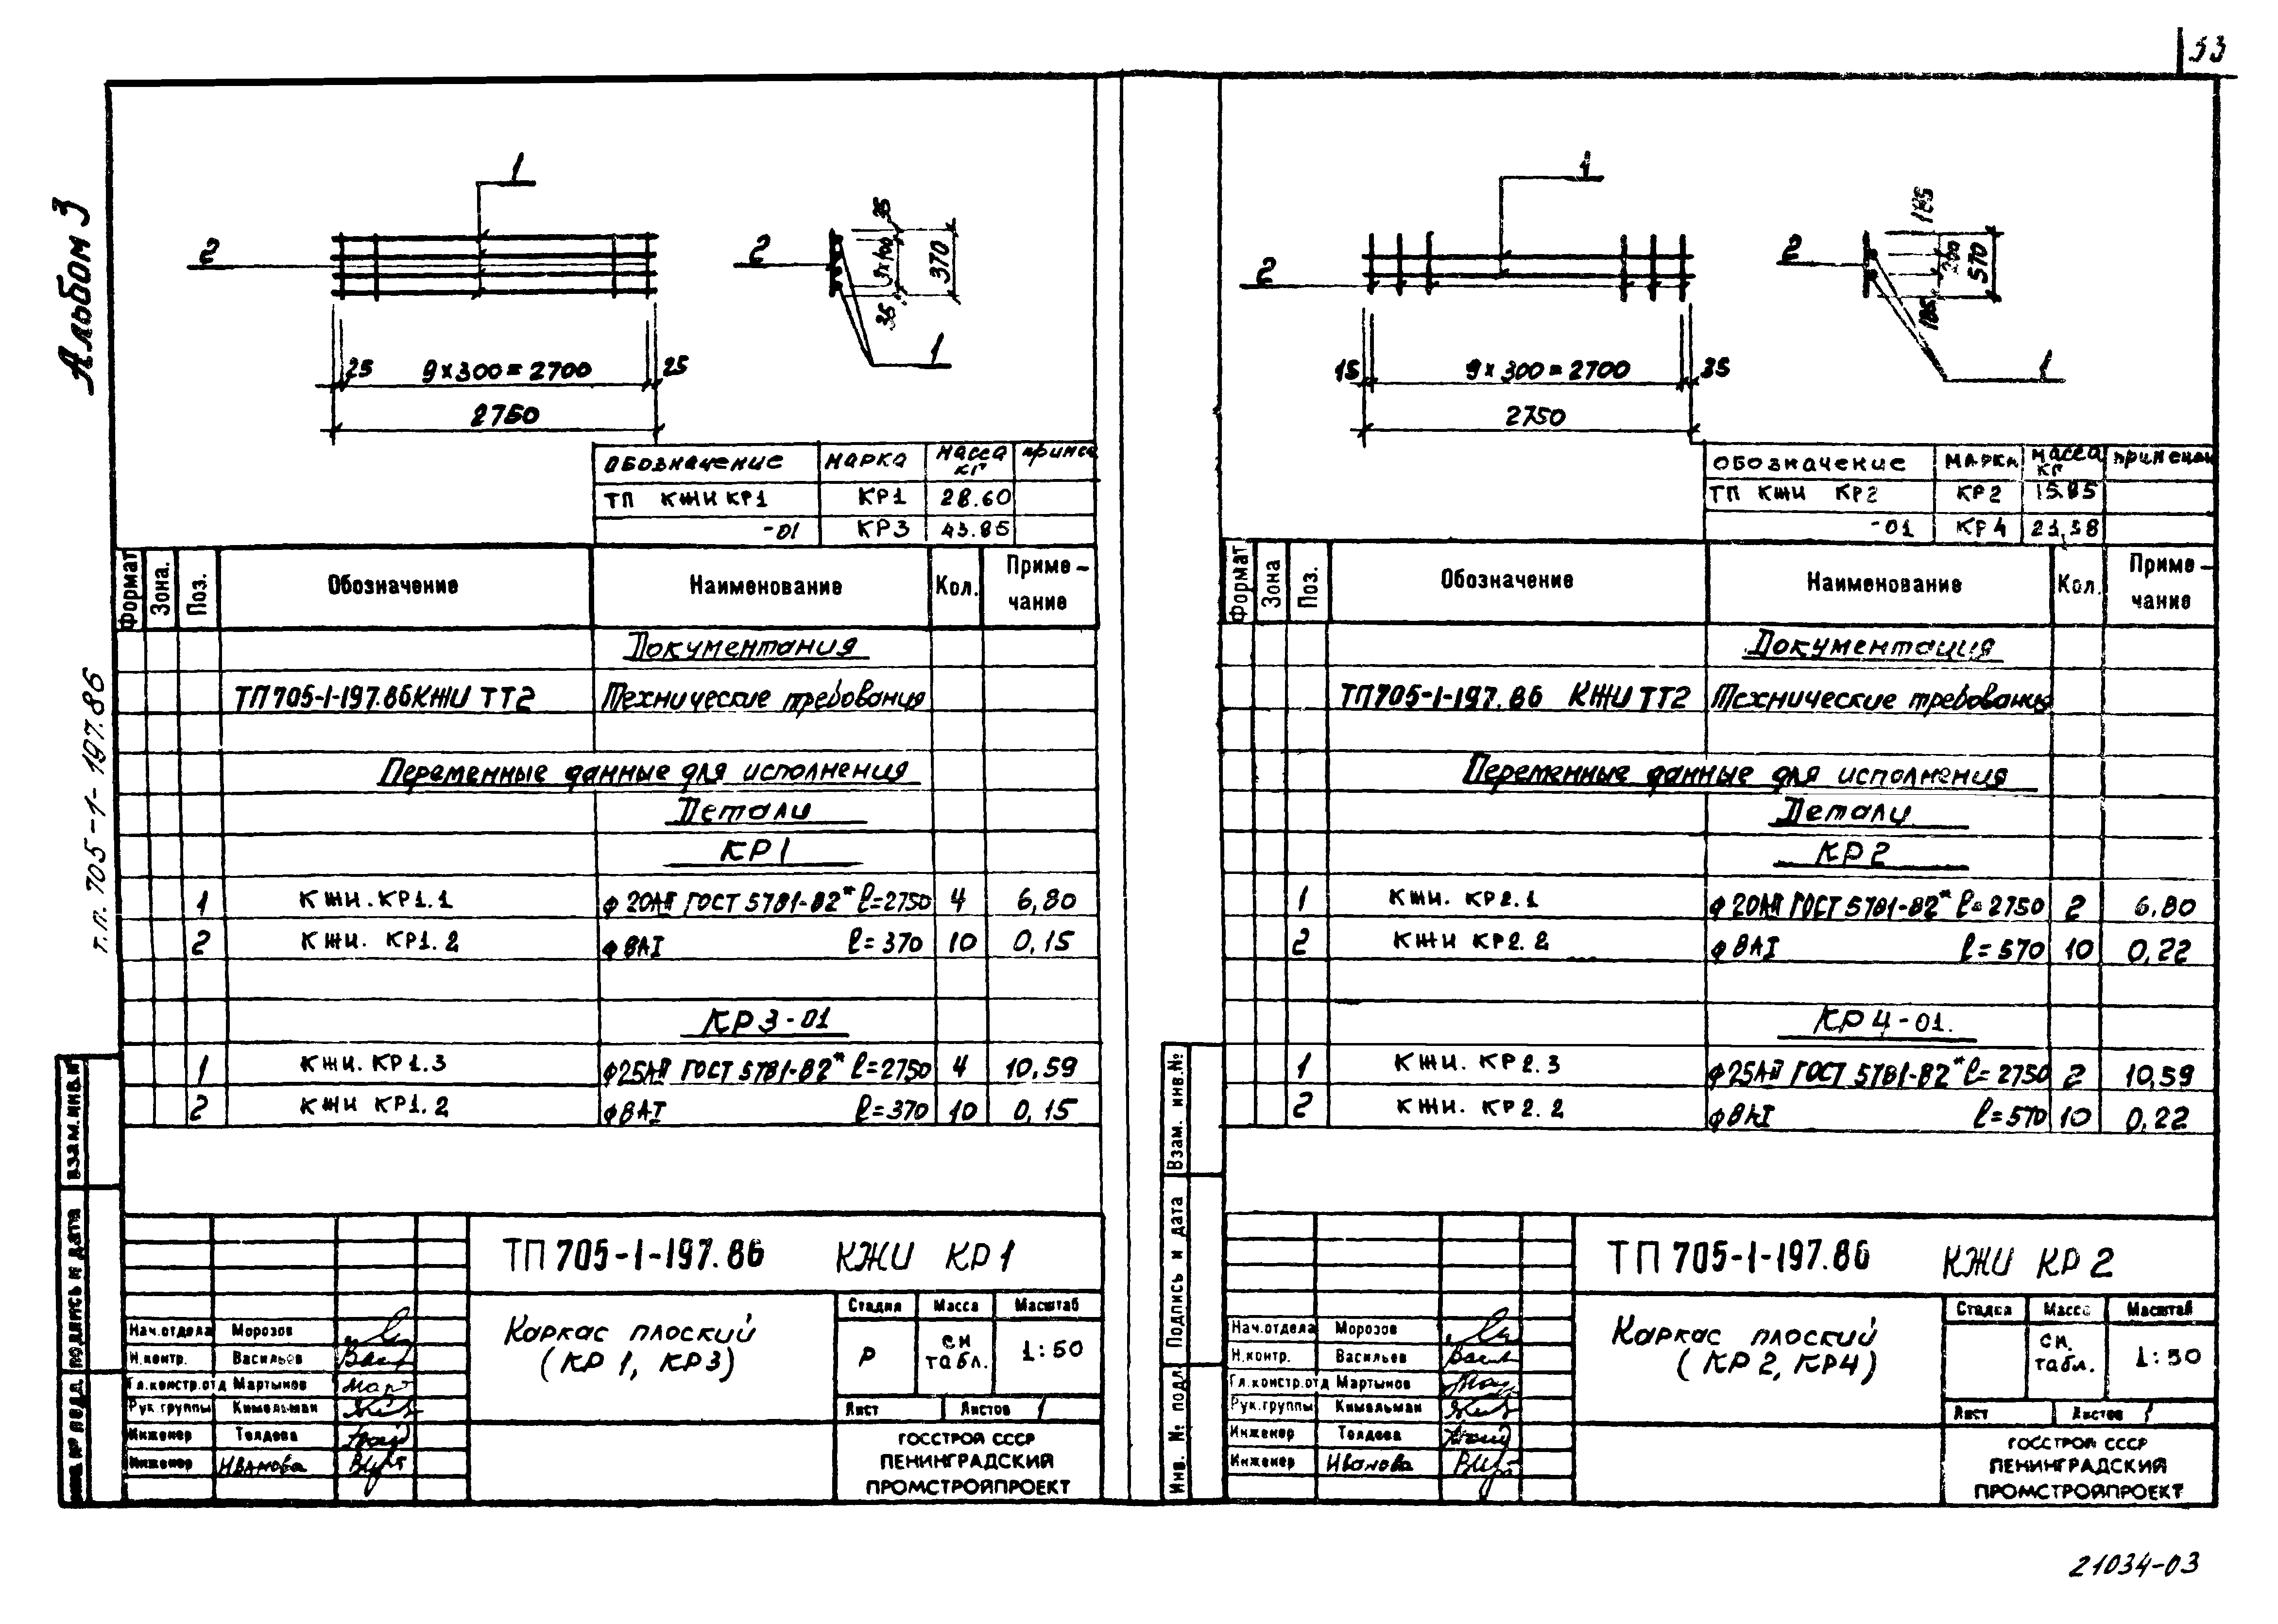 53
Альбом 3
т.п. 705-1-197.86
1
2
2
35
3х100
35
370
1
25
9х300=2700
25
2750
Обозначение Марка Масса кг примеч
ТП КЖИ КР1 КР1 28.60
-01 КР3 43.85
Формат Зона. Поз. Обозначение Наименование Кол. Приме-
чание
Документация
ТП705-1-197.86КЖИ ТТ2 Технические требования
Переменные данные для исполнения
Детали
КР1
1 КЖИ.КР1.1 ф20АII ГОСТ 5781-82* ℓ=2750 4 6,80
2 КЖИ. КР1.2 ф8АI ℓ=370 10 0,15
КР3-01
1 КЖИ.КР1.3 ф25АII ГОСТ 5781-82* ℓ=2750 4 10,59
2 КЖИ КР1.2 ф8АI ℓ=370 10 0,15
Взам.инв.№
Подпись и дата
Инв. № подл.
ТП 705-1-197.86 КЖИ КР1
Каркас плоский
(КР1, КР3)
Стадия Масса Масштаб
Р см табл. 1:50
Лист Листов 1
Нач.отдела Морозов
Н.контр. Васильев
Гл.констр.отд Мартынов
Рук.группы Кимельман
Инженер Толдева
Инженер Иванова
ГОССТРОЙ СССР
ЛЕНИНГРАДСКИЙ
ПРОМСТРОЙПРОЕКТ
1
2
2
185
200
185
570
1
15
9х300=2700
35
2750
Обозначение Марка Масса кг примечан
ТП КЖИ КР2 КР2 15.85
-01 КР4 23,38
Формат Зона Поз. Обозначение Наименование Кол. Приме-
чание
Документация
ТП705-1-197.86 КЖИ ТТ2 Технические требования
Переменные данные для исполнения
Детали
КР2
1 КЖИ. КР2.1 ф20АII ГОСТ 5781-82* ℓ=2750 2 6.80
2 КЖИ КР2.2 ф8АI ℓ=570 10 0,22
КР4-01.
1 КЖИ. КР2.3 ф25АII ГОСТ 5781-82* ℓ=2750 2 10,59
2 КЖИ. КР2.2 ф8АI ℓ=570 10 0,22
Взам. инв.№
Подпись и дата
Инв. № подл
ТП 705-1-197.86 КЖИ КР2
Каркас плоский
(КР2, КР4)
Стадия Масса Масштаб
см. табл. 1:50
Лист Листов 1
Нач.отдела Морозов
Н.контр. Васильев
Гл.констр.отд Мартынов
Рук.группы Кимельман
Инженер Толдева
Инженер Иванова
ГОССТРОЙ СССР
ЛЕНИНГРАДСКИЙ
ПРОМСТРОЙПРОЕКТ
21034-03